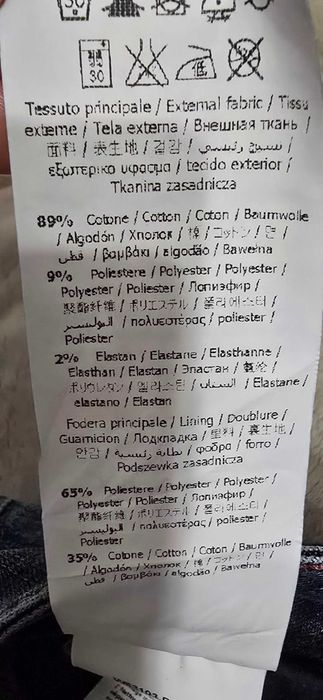 30
30
低
Tessuto principale / External fabric / Tissu
externe / Tela externa / Внешная ткань /
面料 / 表生地 / 겉감 / نسيج رئيسي /
εξωτερικο υφασμα / tecido exterior /
Tkanina zasadnicza
89% Cotone / Cotton / Coton / Baumwolle
/ Algodón / Хлопок / 棉 / コットン / 면 /
قطن / βαμβάκι / algodão / Bawełna
9% Poliestere / Polyester / Polyester /
Polyester / Poliester / Полиэфир /
聚酯纤维 / ポリエステル / 폴리에스터 /
البوليستر / πολυεστέρας / poliester /
Poliester
2% Elastan / Elastane / Elasthanne /
Elasthan / Elastan / Эластан / 氨纶 /
ポリウレタン / 엘라스틴 / الستان / Elastane /
elastano / Elastan
Fodera principale / Lining / Doublure /
Guarnicion / Подкладка / 里料 / 裏生地 /
안감 / بطانة رئيسية / φοδρα / forro /
Podszewka zasadnicza
65% Poliestere / Polyester / Polyester /
Polyester / Poliester / Полиэфир /
聚酯纤维 / ポリエステル / 폴리에스터 /
البوليستر / πολυεστέρας / poliester /
Poliester
35% Cotone / Cotton / Coton / Baumwolle
/ Algodón / Хлопок / 棉 / コットン / 면 /
قطن / βαμβάκι / algodão / Bawełna